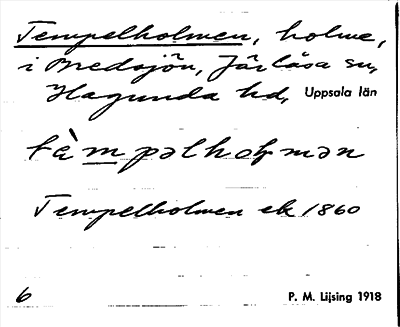 Tempelholmen, holme,
i Bredsjön, Järlåsa sn,
Hagunda hd, Uppsala län
tὰmpəlhoɫmən
Tempelholmen ek 1860
6 P. M. Lijsing 1918